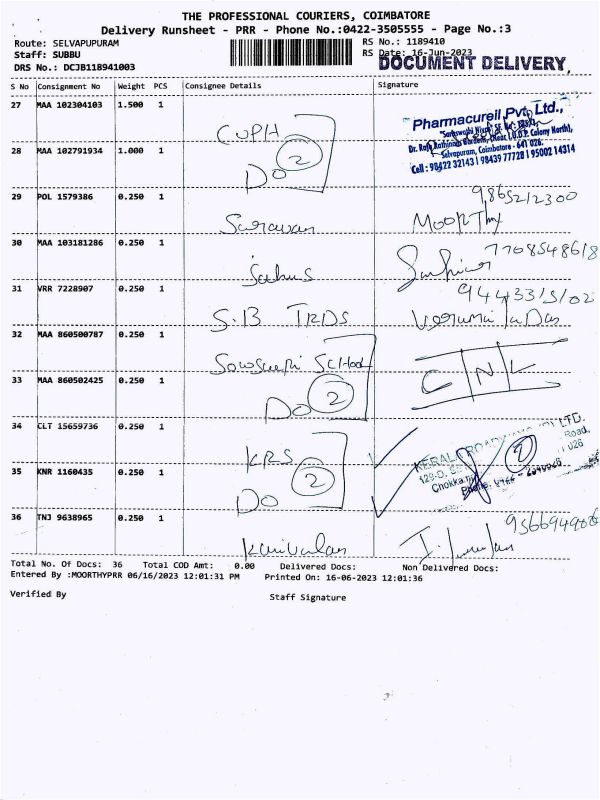 THE PROFESSIONAL COURIERS, COIMBATORE
Delivery Runsheet - PRR - Phone No.:0422-3505555 - Page No.:3
Route: SELVAPUPURAM RS No.: 1189410
Staff: SUBBU RS Date: 16-Jun-2023
DRS No.: DCJB118941003 DOCUMENT DELIVERY,
S No Consignment No Weight PCS Consignee Details Signature
27 MAA 102304103 1.500 1
CUPH
Pharmacureil Pvt. Ltd.,
28 MAA 102791934 1.000 1
DO 2
Selvapuram, Coimbatore - 641 026.
Cell : 98422 32143 | 98439 77728 | 95002 14314
29 POL 1579386 0.250 1
Saravan Moorthy 9865212300
30 MAA 103181286 0.250 1
7708548618
31 VRR 7228907 0.250 1
S.B TRDS
32 MAA 860500787 0.250 1
School
33 MAA 860502425 0.250 1
DO 2 CNL
34 CLT 15659736 0.250 1
KRS
35 KNR 1160435 0.250 1
DO 2
36 TNJ 9638965 0.250 1
Total No. Of Docs: 36 Total COD Amt: 0.00 Delivered Docs: Non Delivered Docs:
Entered By :MOORTHYPRR 06/16/2023 12:01:31 PM Printed On: 16-06-2023 12:01:36
Verified By Staff Signature